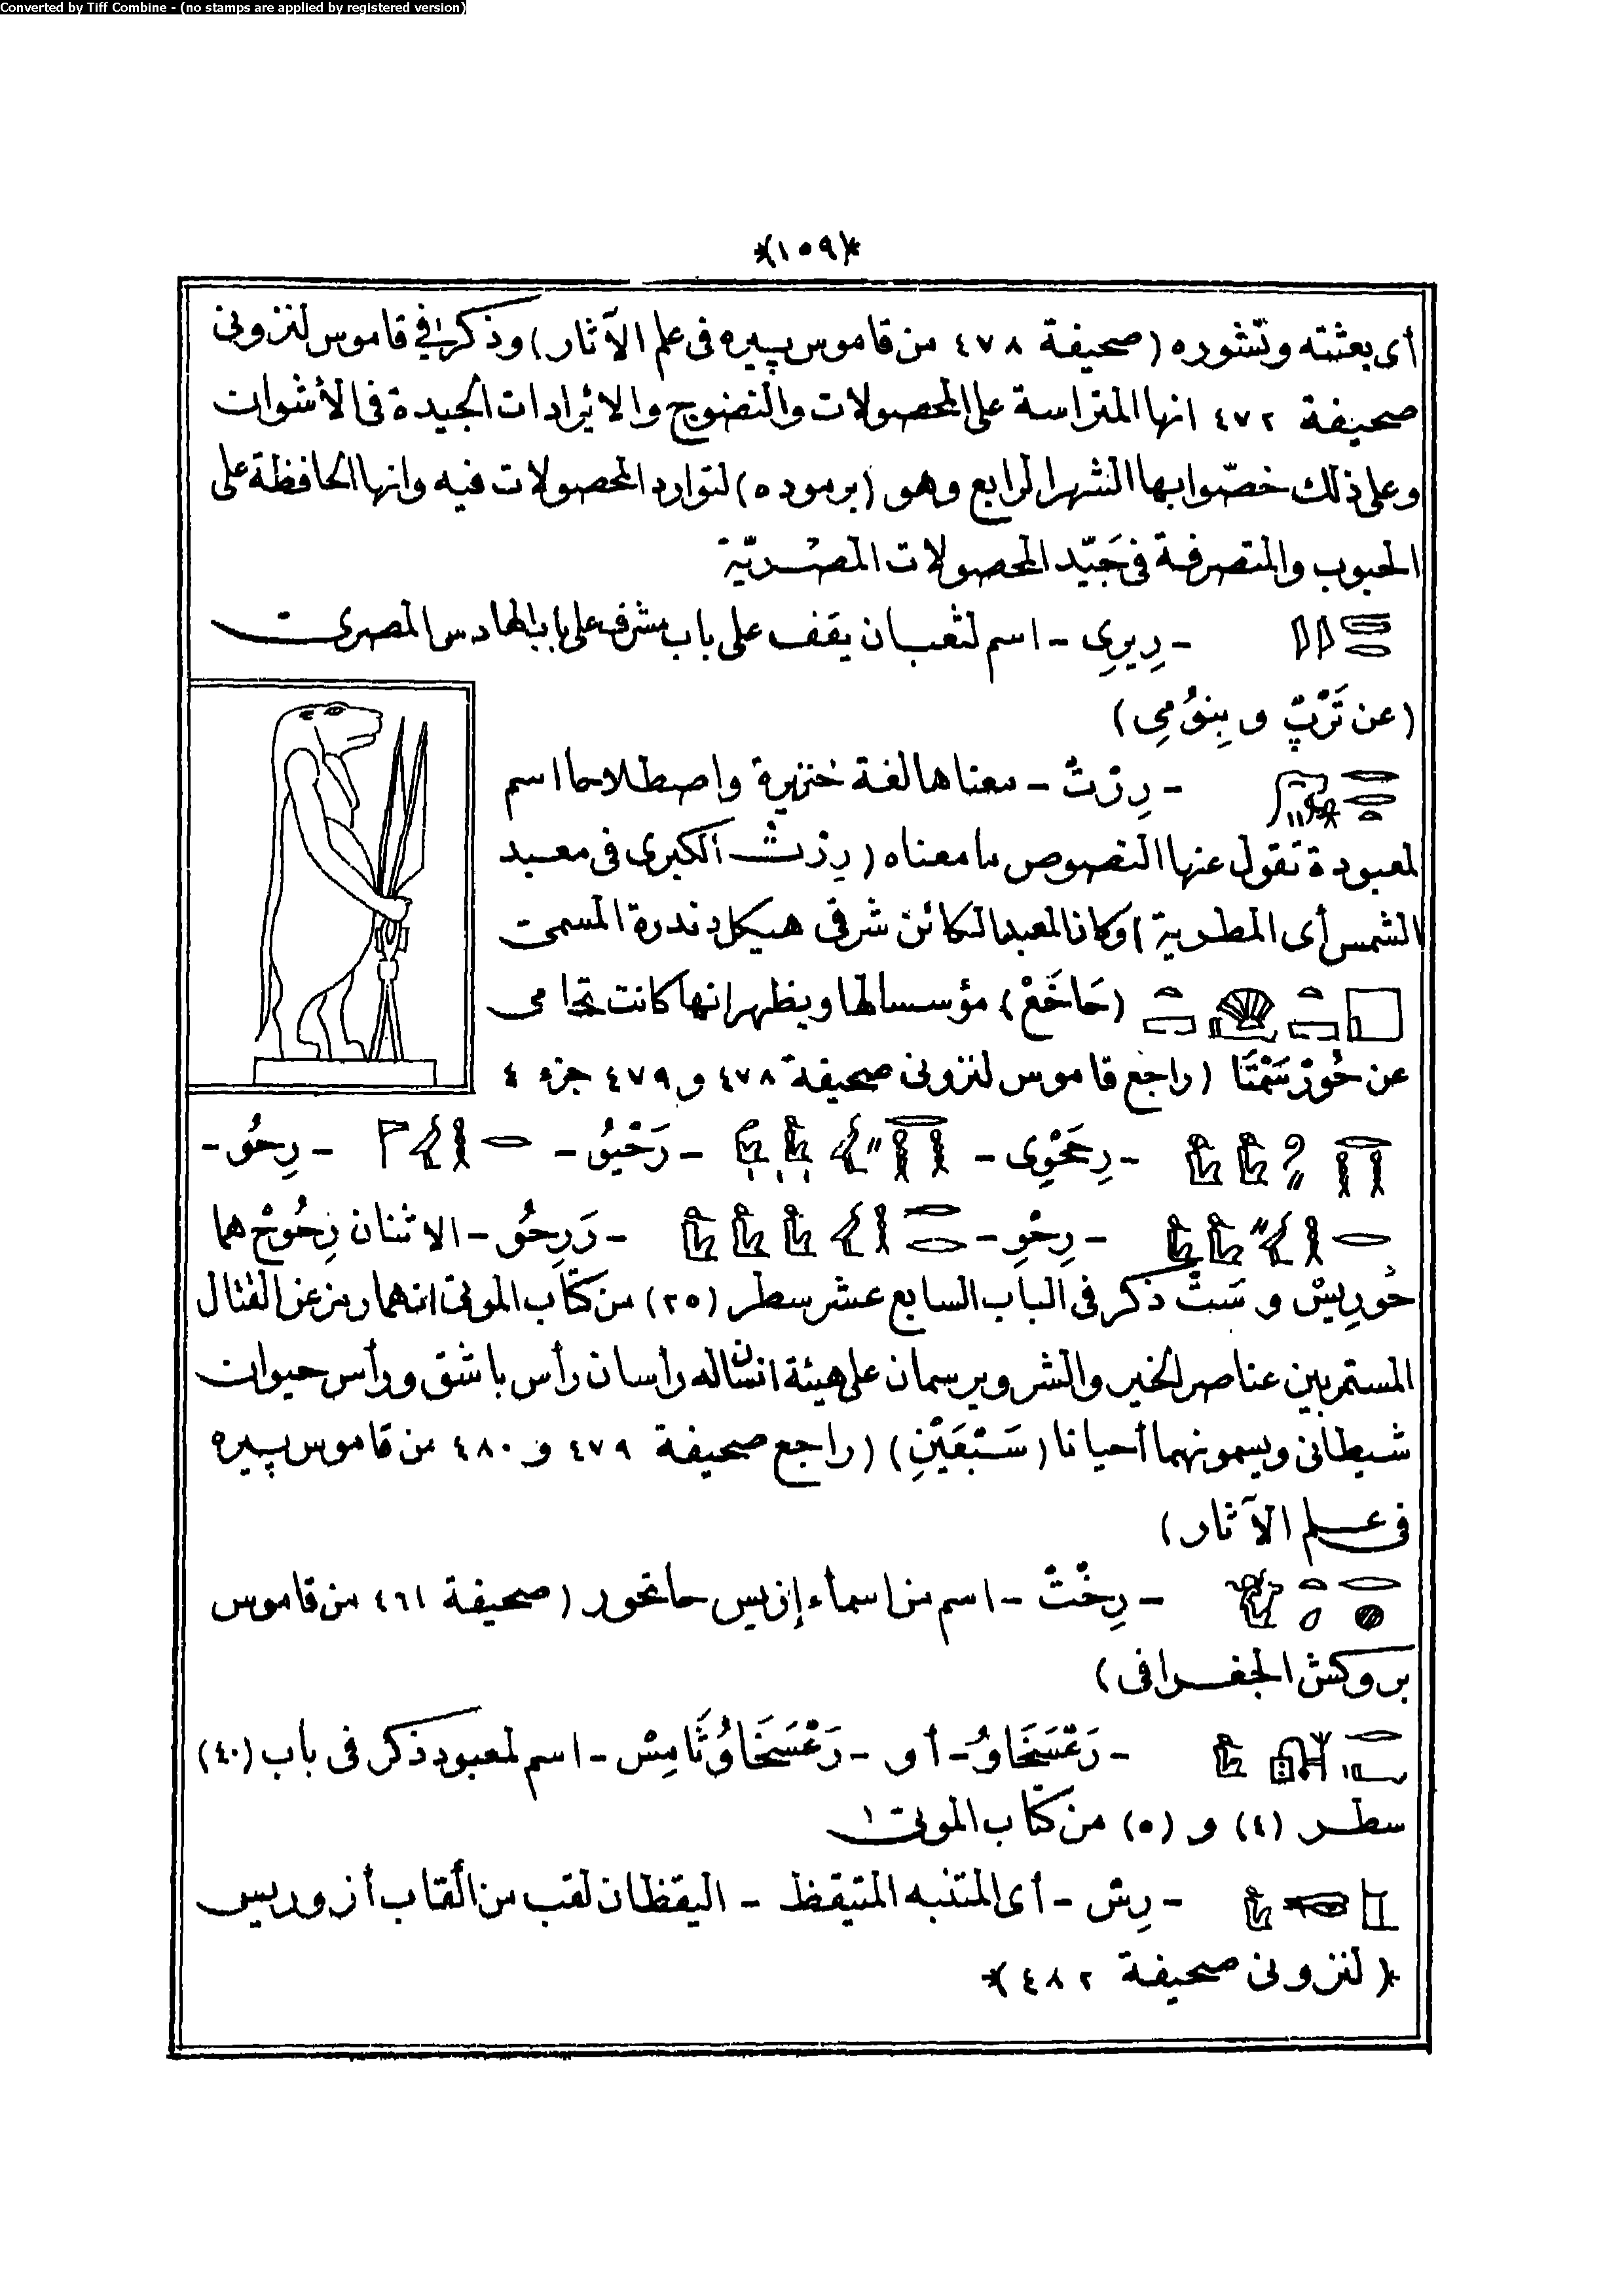 Converted by Tiff Combine - (no stamps are applied by registered version)
*(١٥٩)*
أى بعثته ونشوره (صحيفة ٤٧٨ من قاموس پييره فى علم الآثار) وذكر فى قاموس لنزونى
صحيفة ٤٧٢ انها المتراسة على المحصولات والنضوج والايرادات الجيدة فى الأشوات
وعلى ذلك خصّوا بها الشهر الرابع وهو (برموده) لتوارد المحصولات فيه وانها الحافظة على
الحبوب والمتصرفة فى جَيّد المحصولات المصْريّة
- رِيرِى - اسم لثعبان يقف على باب مشرف على باب الهادس المصرى
(عن تَرْپْ و بِنوُمِى)
- رِرْتْ - معناها لغة خنزيرة واصطلاحا اسم
لمعبودة تقول عنها النصوص ما معناه (رِرْتْ الكبرى فى معبد
الشمس أى المطرية) وكان المعبد الكائن شرقى هيكل دندرة المسمى
(حَاخَعْ) مؤسسا لها ويظهر انها كانت تحامى
عن حُورْسَمْتَا (راجع قاموس لنزونى صحيفة ٤٧٨ و ٤٧٩ جزء ٤
- رِحَحْوِى - - رَحْيوُ - - رِحوُ -
- رِحْوِ - - رَرِحوُ - الاثنان رِحُوحْ هما
حُورِيسْ و سَتْ ذكر فى الباب السابع عشر سطر (٢٥) من كتاب الموتى انهما رمز عن القتال
المستمر بين عناصر الخير والشر ويرسمان على هيئة انسان له رأسان رأس باشق ورأس حيوان
شيطانى ويسمونهما أحيانا (سَبْعَيْنِ) (راجع صحيفة ٤٧٩ و ٤٨٠ من قاموس پييره
فى علم الآثار)
- رِخْتْ - اسم من اسماء إزيس حاتحور (صحيفة ٤٦١ من قاموس
بروكش الجغرافى)
- رَعْسَخَاوُ - أو - رَعْسَخَاوُثَامِسْ - اسم لمعبود ذكر فى باب (٤٠)
سطر (٤) و (٥) من كتاب الموتى
- رِسْ - أى المتنبه المتيقظ - اليقظان لقب من ألقاب أزوريس
*(لنزونى صحيفة ٤٨٢)*